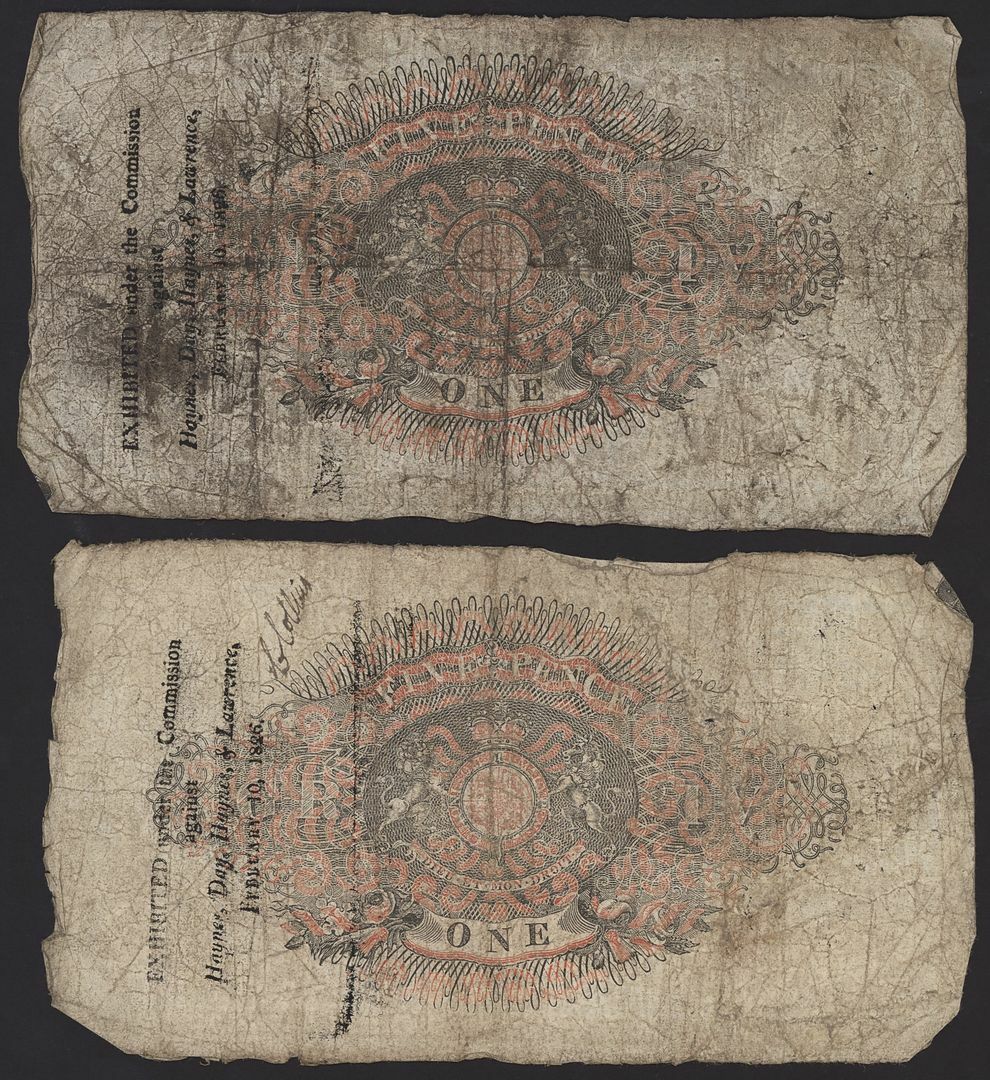 EXHIBITED under the Commission
against
Haynes, Day, Haynes, & Lawrence,
FEBRUARY 10, 1846.
Collins
FIVE PENCE
ONE
EXHIBITED under the Commission
against
Haynes, Day, Haynes, & Lawrence,
FEBRUARY 10, 1846.
Collins
FIVE PENCE
DIEU·ET·MON·DROIT
ONE